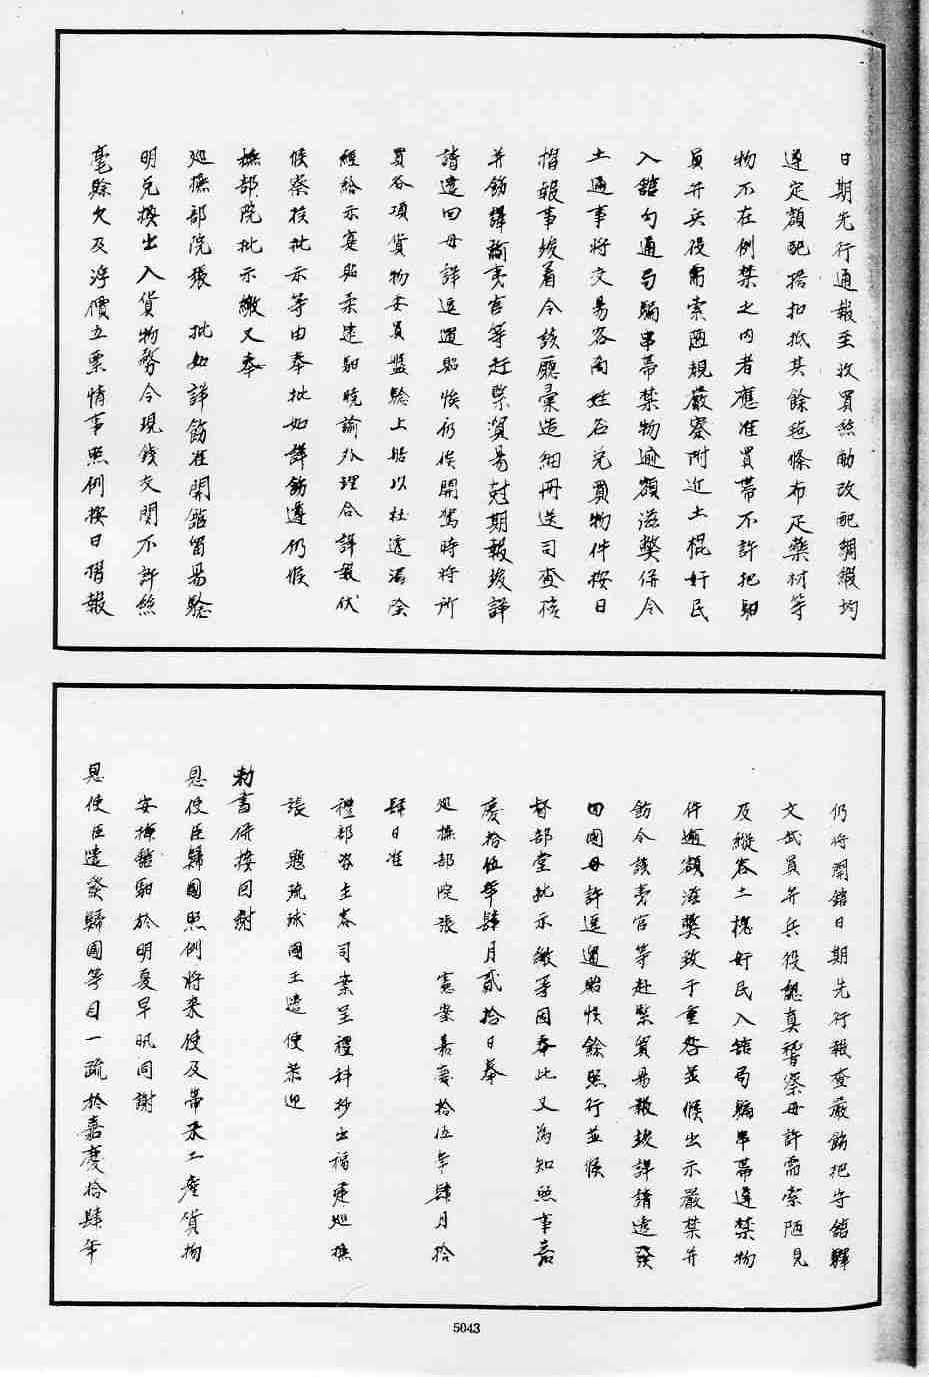 日期先行通報至收買絲觔改配綢緞均
遵定額配搭扣抵其餘毡條布疋藥材等
物不在例禁之內者應准買帶不許把驲
員弁兵役需索陋規嚴密附近土棍奸民
入館勾通局騙串帶禁物逾額滋弊併令
土通事將交易各商姓名兌買物件按日
摺報事竣着令該廳彙造細冊送司查核
并飭譯諭夷官等赶緊貿易尅期報竣詳
請遣回毋詳逗遛貽悮仍俟開駕時將所
買各項貨物委員盤驗上船以杜透漏除
經給示宴貼柔遠驲曉諭外理合詳報伏
候察核批示等由奉批如詳飭遵仍候
撫部院批示繳又奉
廵撫部院張 批如詳飭准開館貿易驗
明兌換出入貨物務令現錢交關不許絲
毫賒欠及浮價立票情事照例按日摺報
仍将開館日期先行報查嚴飭把守館驛
文武員弁兵役認真稽察毋許需索陋規
及縱容土棍奸民入館局騙串帶違禁物
件逾額滋獘致于重咎並候出示嚴禁并
飭令該夷官等赴緊貿易報竣詳請遣發
回國毋許逗遛貽悮餘照行並候
督部堂批示繳等因奉此又為知照事嘉
慶拾伍年肆月貳拾日奉
廵撫部院張 憲案嘉慶拾伍年肆月拾
肆日准
禮部咨主客司案呈禮科抄出福建廵撫
張 題琉球國王遣使恭迎
勅書併接回謝
恩使臣歸國照例將來使及帶來土產貨物
安插館驲於明夏早汛同謝
恩使臣遣發歸國等因一疏於嘉慶拾肆年
5043